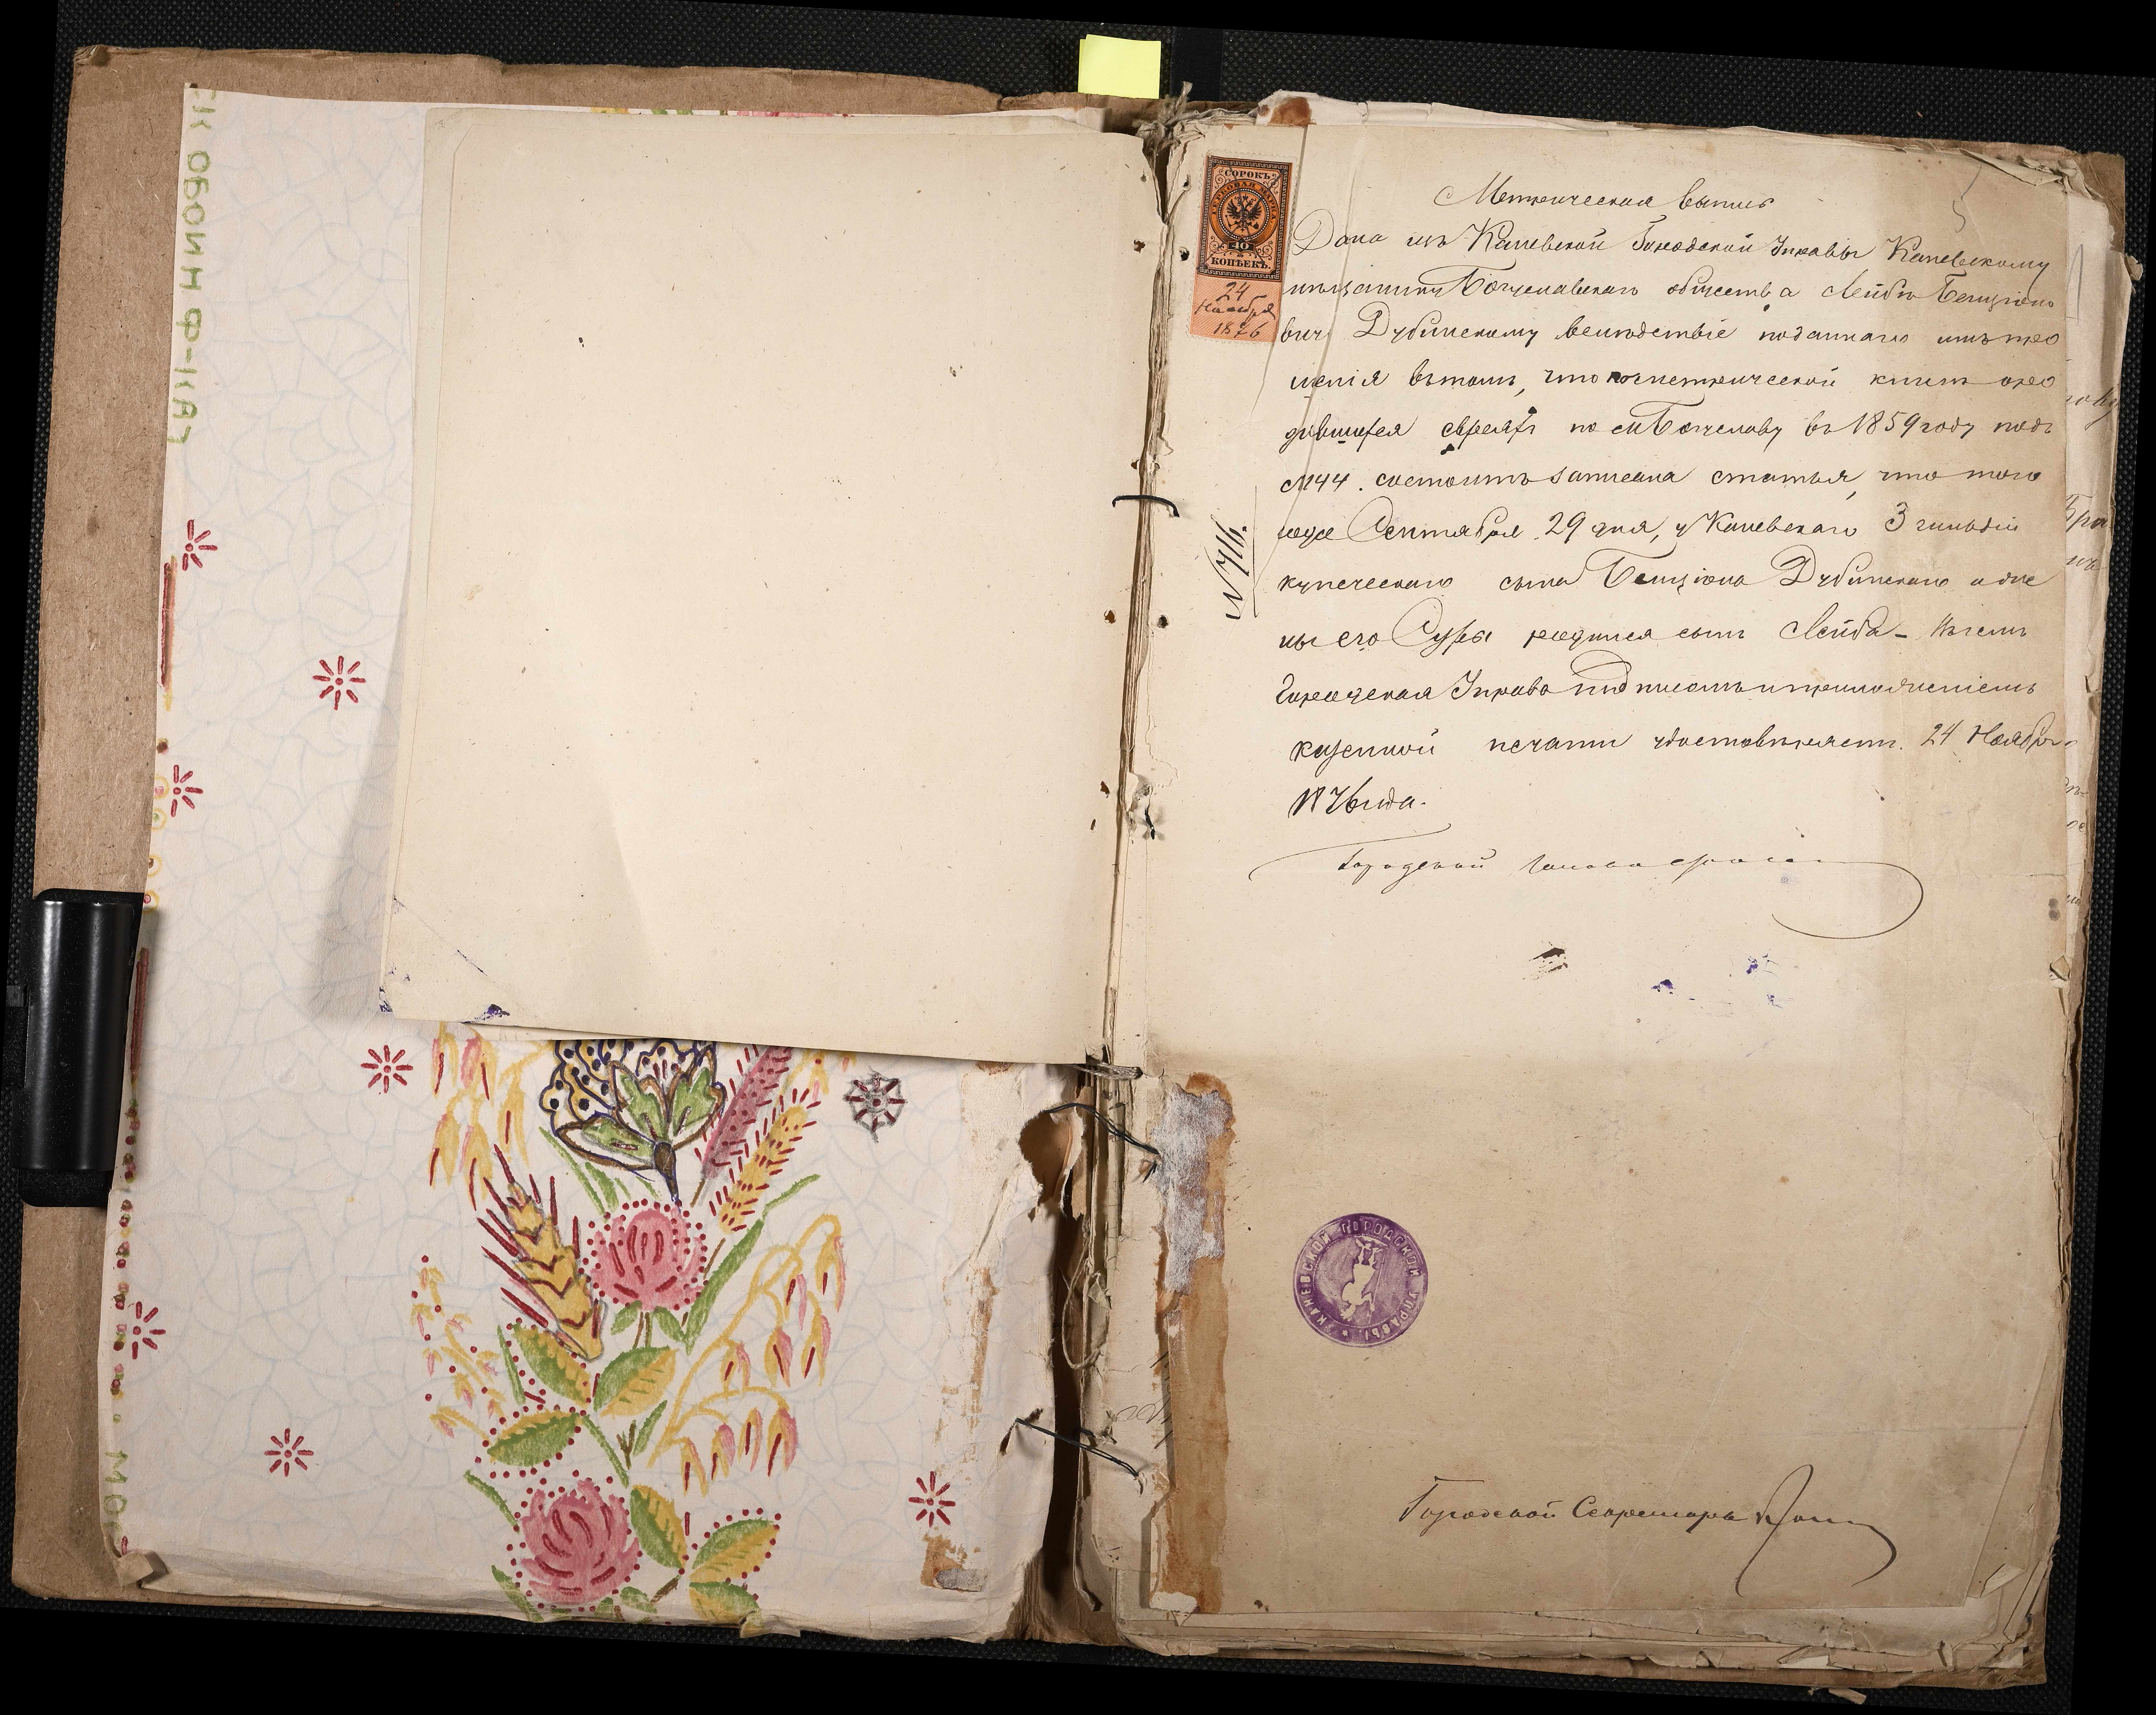 К ОБОИН Ф-КА
МО
СОРОКЪ
ГЕРБОВАЯ МАРКА
40
КОПѢЕКЪ.
24
Ноября
1876
№ 716.
Метрическая выпись
Дана изъ Каневской Городской Управы Каневскому
мѣщанину Богуславскаго общества Лейбѣ Бенціоно
вичу Дубинскому вслѣдствіе поданнаго имъ про
шенія въ томъ, что по метрической книгѣ о ро
дившихся евреяхъ по м. Богуславу въ 1859 году подъ
№ 44. состоитъ записана статья, что того
года Сентября 29 дня, у Каневскаго 3 гильдіи
купеческаго сына Бенціона Дубинскаго и же
ны его Суры родился сынъ Лейба - въ чемъ
Городская Управа подписомъ и приложеніемъ
казенной печати удостовѣряетъ. 24 Ноября
1876 года.
Городской Голова
КАНЕВСКОЙ ГОРОДСКОЙ УПРАВЫ
Городской Секретарь